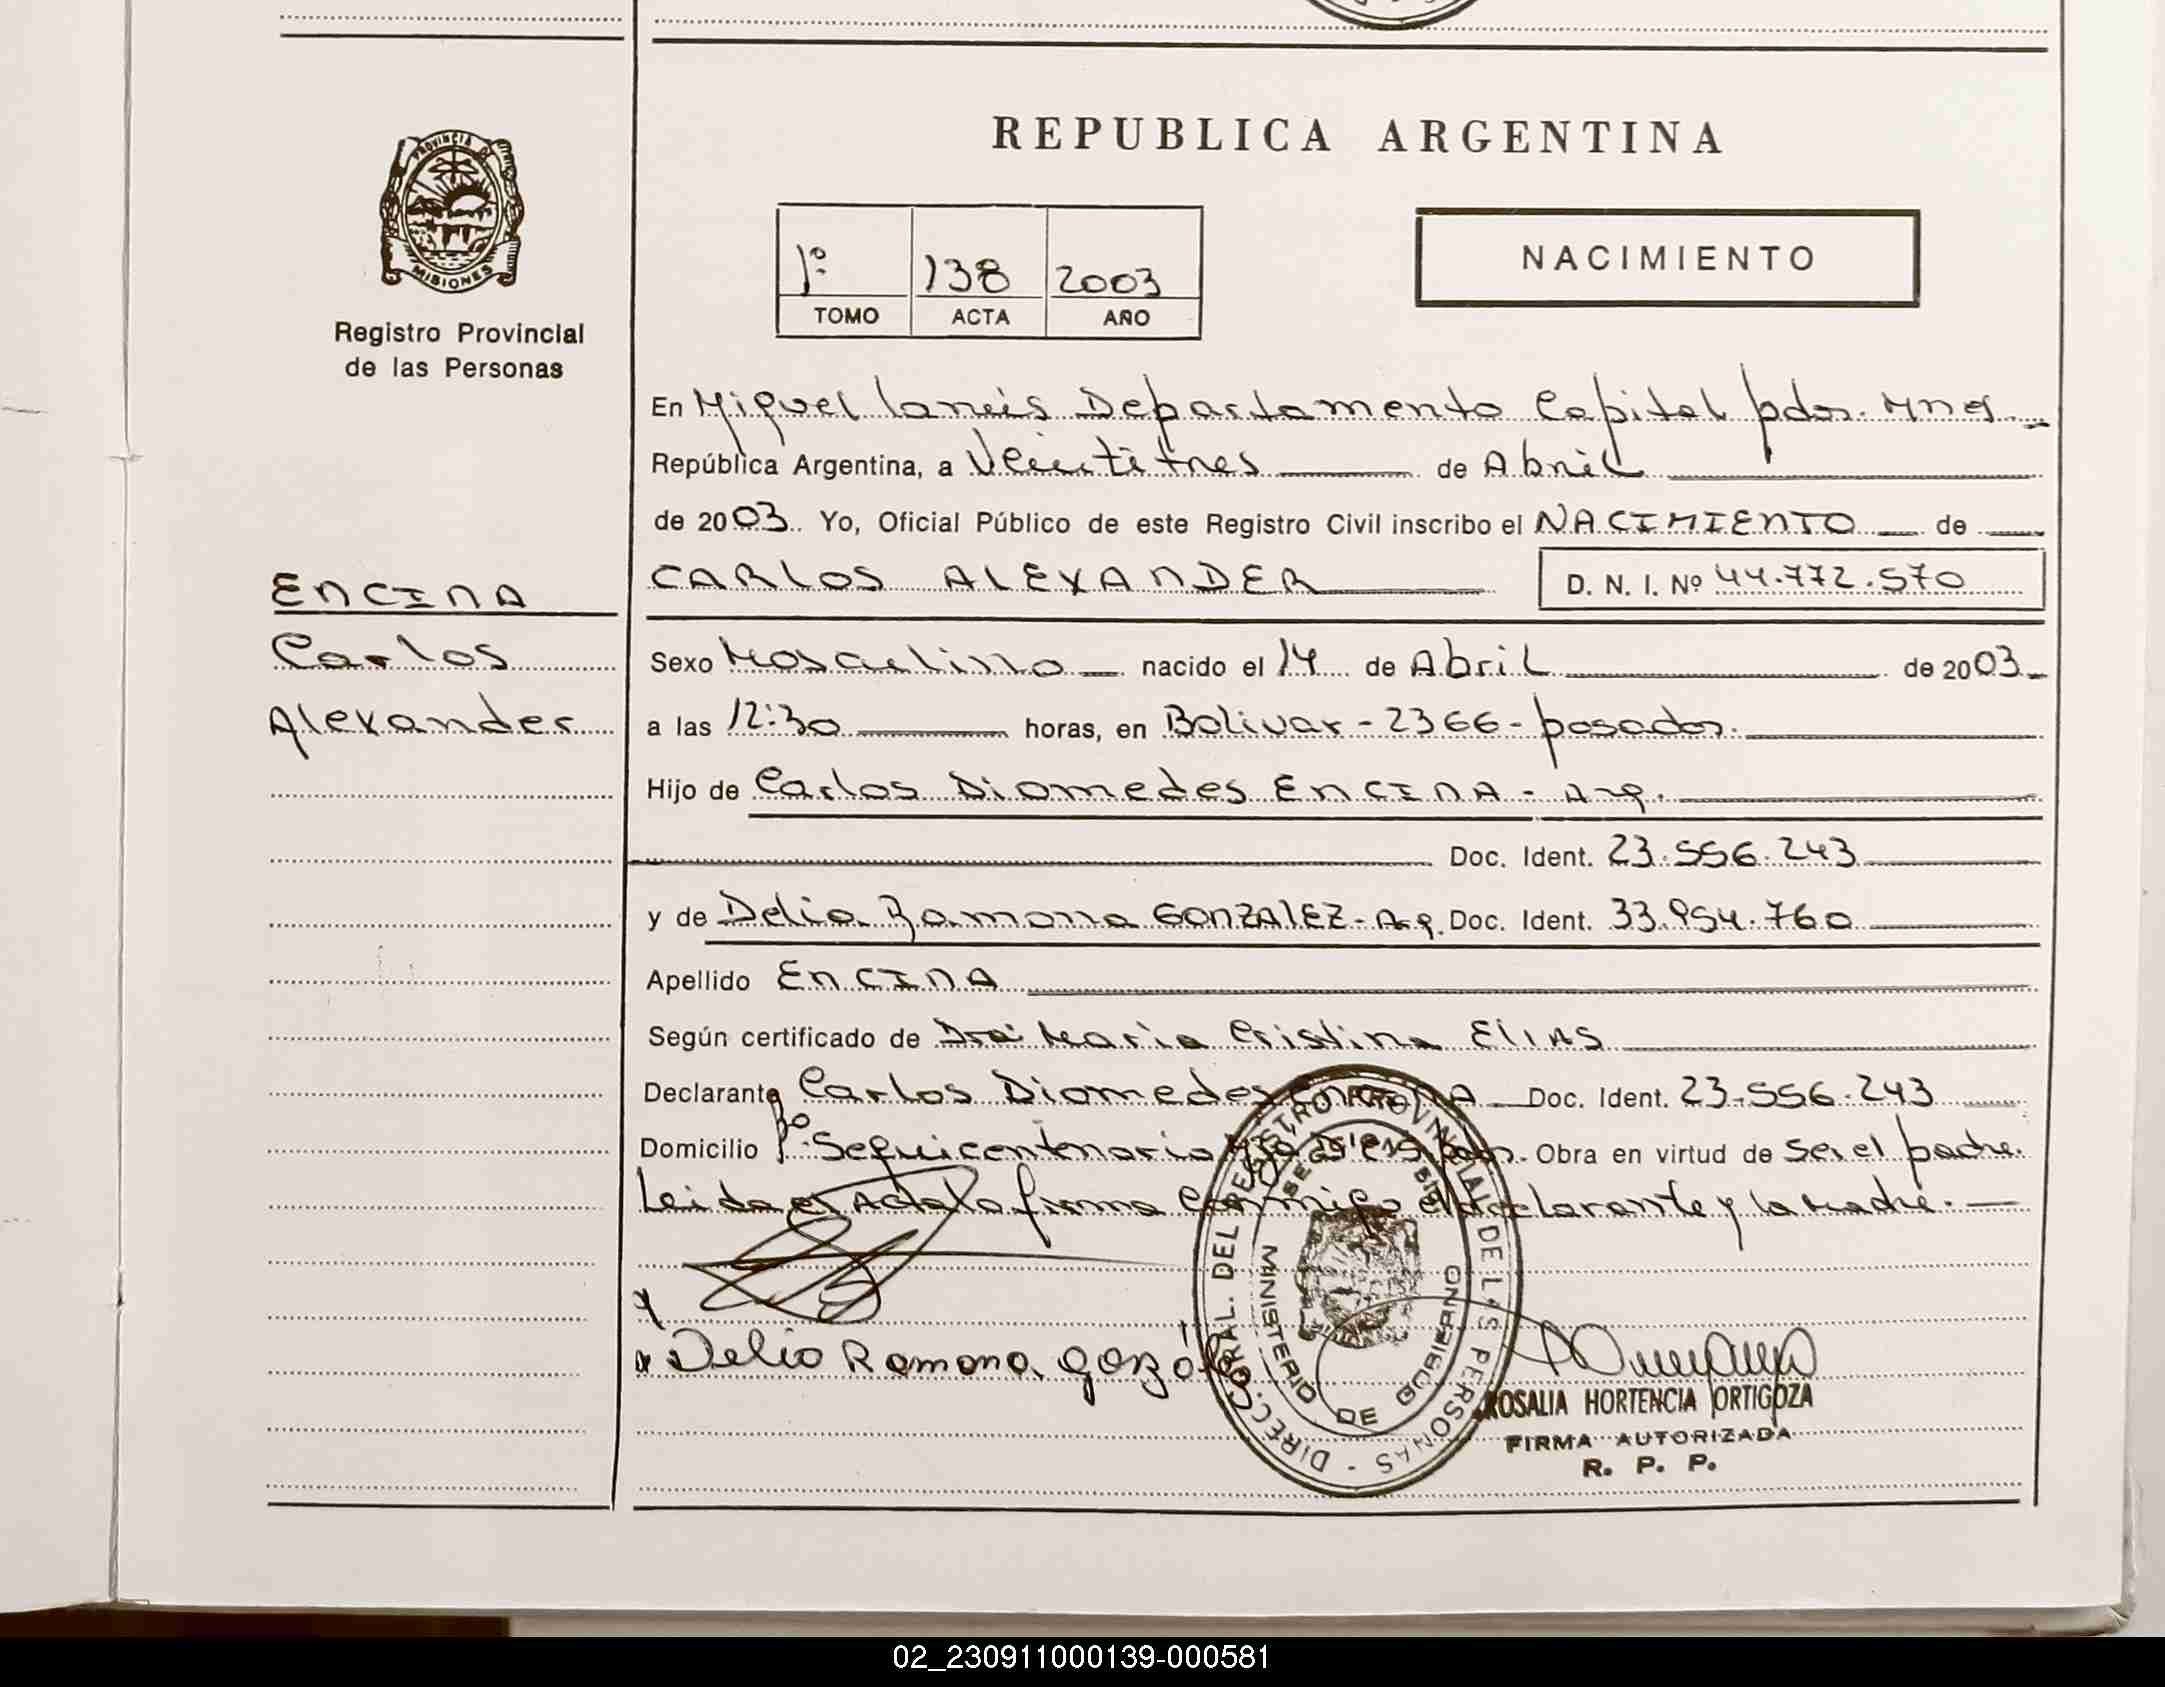 REPUBLICA ARGENTINA
PROVINCIA DE
MISIONES
Registro Provincial
de las Personas
1º 138 2003
TOMO ACTA AÑO
NACIMIENTO
En Miguel Lanús Departamento Capital pdas. Mnes.
República Argentina, a Veintitres de Abril
de 2003. Yo, Oficial Público de este Registro Civil inscribo el NACIMIENTO de
CARLOS ALEXANDER D. N. I. Nº 44.772.570
ENCINA
Carlos
Alexander
Sexo Masculino nacido el 14 de Abril de 2003
a las 12:30 horas, en Bolivar - 2366 - posadas.
Hijo de Carlos Diomedes ENCINA - Arg.
Doc. Ident. 23.556.243
y de Delia Ramona GONZALEZ - Arg. Doc. Ident. 33.954.760
Apellido ENCINA
Según certificado de Dra. Maria Cristina ELIAS
Declarante Carlos Diomedes ENCINA Doc. Ident. 23.556.243
Domicilio Bº Sequicentenario pdas. Obra en virtud de ser el padre.
Leida el Acta la firma conmigo el declarante y la madre.
Delia Ramona gonzá
DIRECC. GRAL. DEL REGISTRO PROVINCIAL DE LAS PERSONAS
MINISTERIO DE GOBIERNO
ROSALIA HORTENCIA ORTIGOZA
FIRMA AUTORIZADA
R. P. P.
02_230911000139-000581